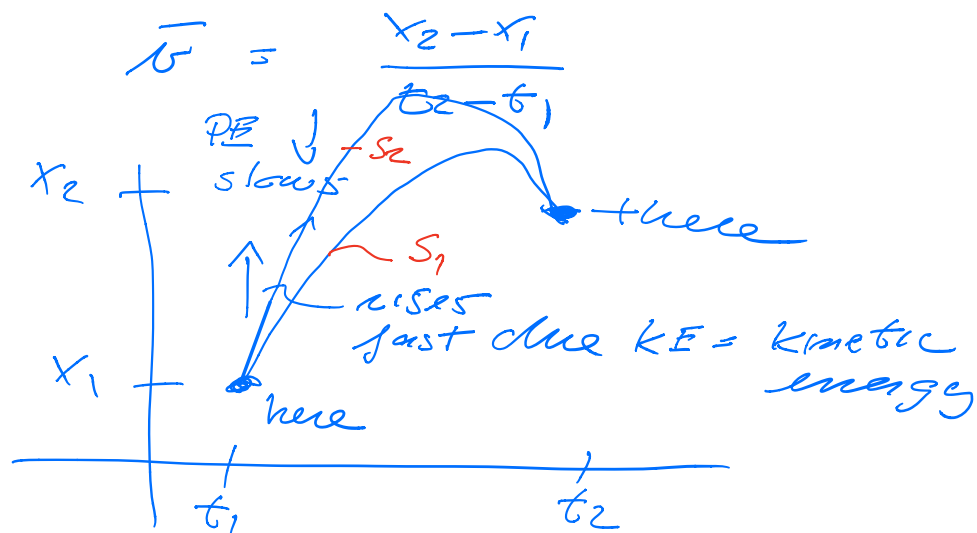 v̄ = x2 − x1
t2 − t1
PE
slows
S2
x2
there
S1
rises
fast due KE = kinetic
energy
x1
here
t1
t2